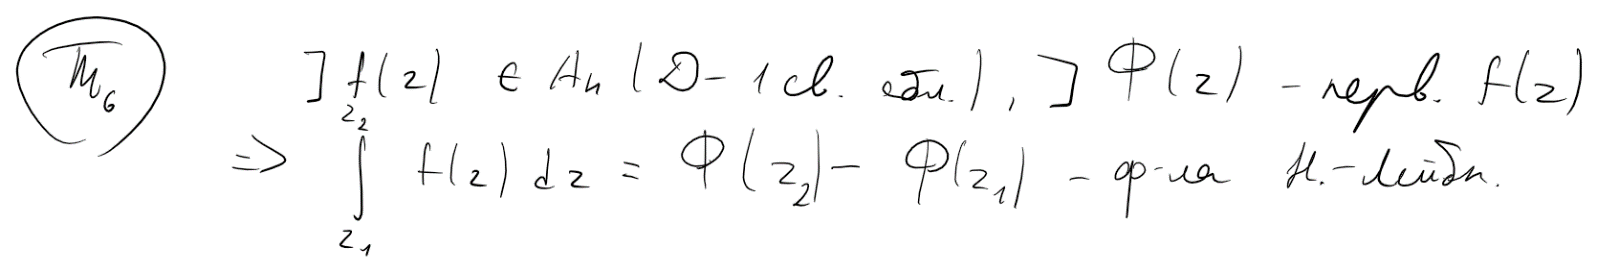 Th₆ ] f(z) ∈ An (D - 1 св. обл.), ] Ф(z) - перв. f(z)
=> ∫_{z₁}^{z₂} f(z) dz = Ф(z₂) - Ф(z₁) - ф-ла Н.-Лейбн.